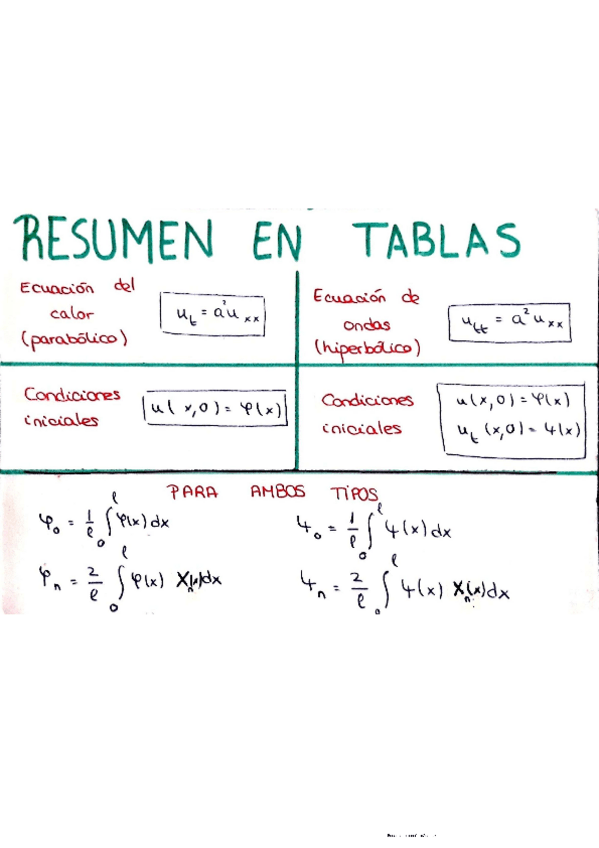 RESUMEN EN TABLAS
Ecuación del
calor
(parabólico)
u_t = a²u_xx
Ecuación de
ondas
(hiperbólico)
u_tt = a²u_xx
Condiciones
iniciales
u(x,0) = φ(x)
Condiciones
iniciales
u(x,0) = φ(x)
u_t(x,0) = ψ(x)
PARA AMBOS TIPOS
φ₀ = 1/ℓ ∫₀^ℓ φ(x) dx
ψ₀ = 1/ℓ ∫₀^ℓ ψ(x) dx
φₙ = 2/ℓ ∫₀^ℓ φ(x) Xₙ(x) dx
ψₙ = 2/ℓ ∫₀^ℓ ψ(x) Xₙ(x) dx